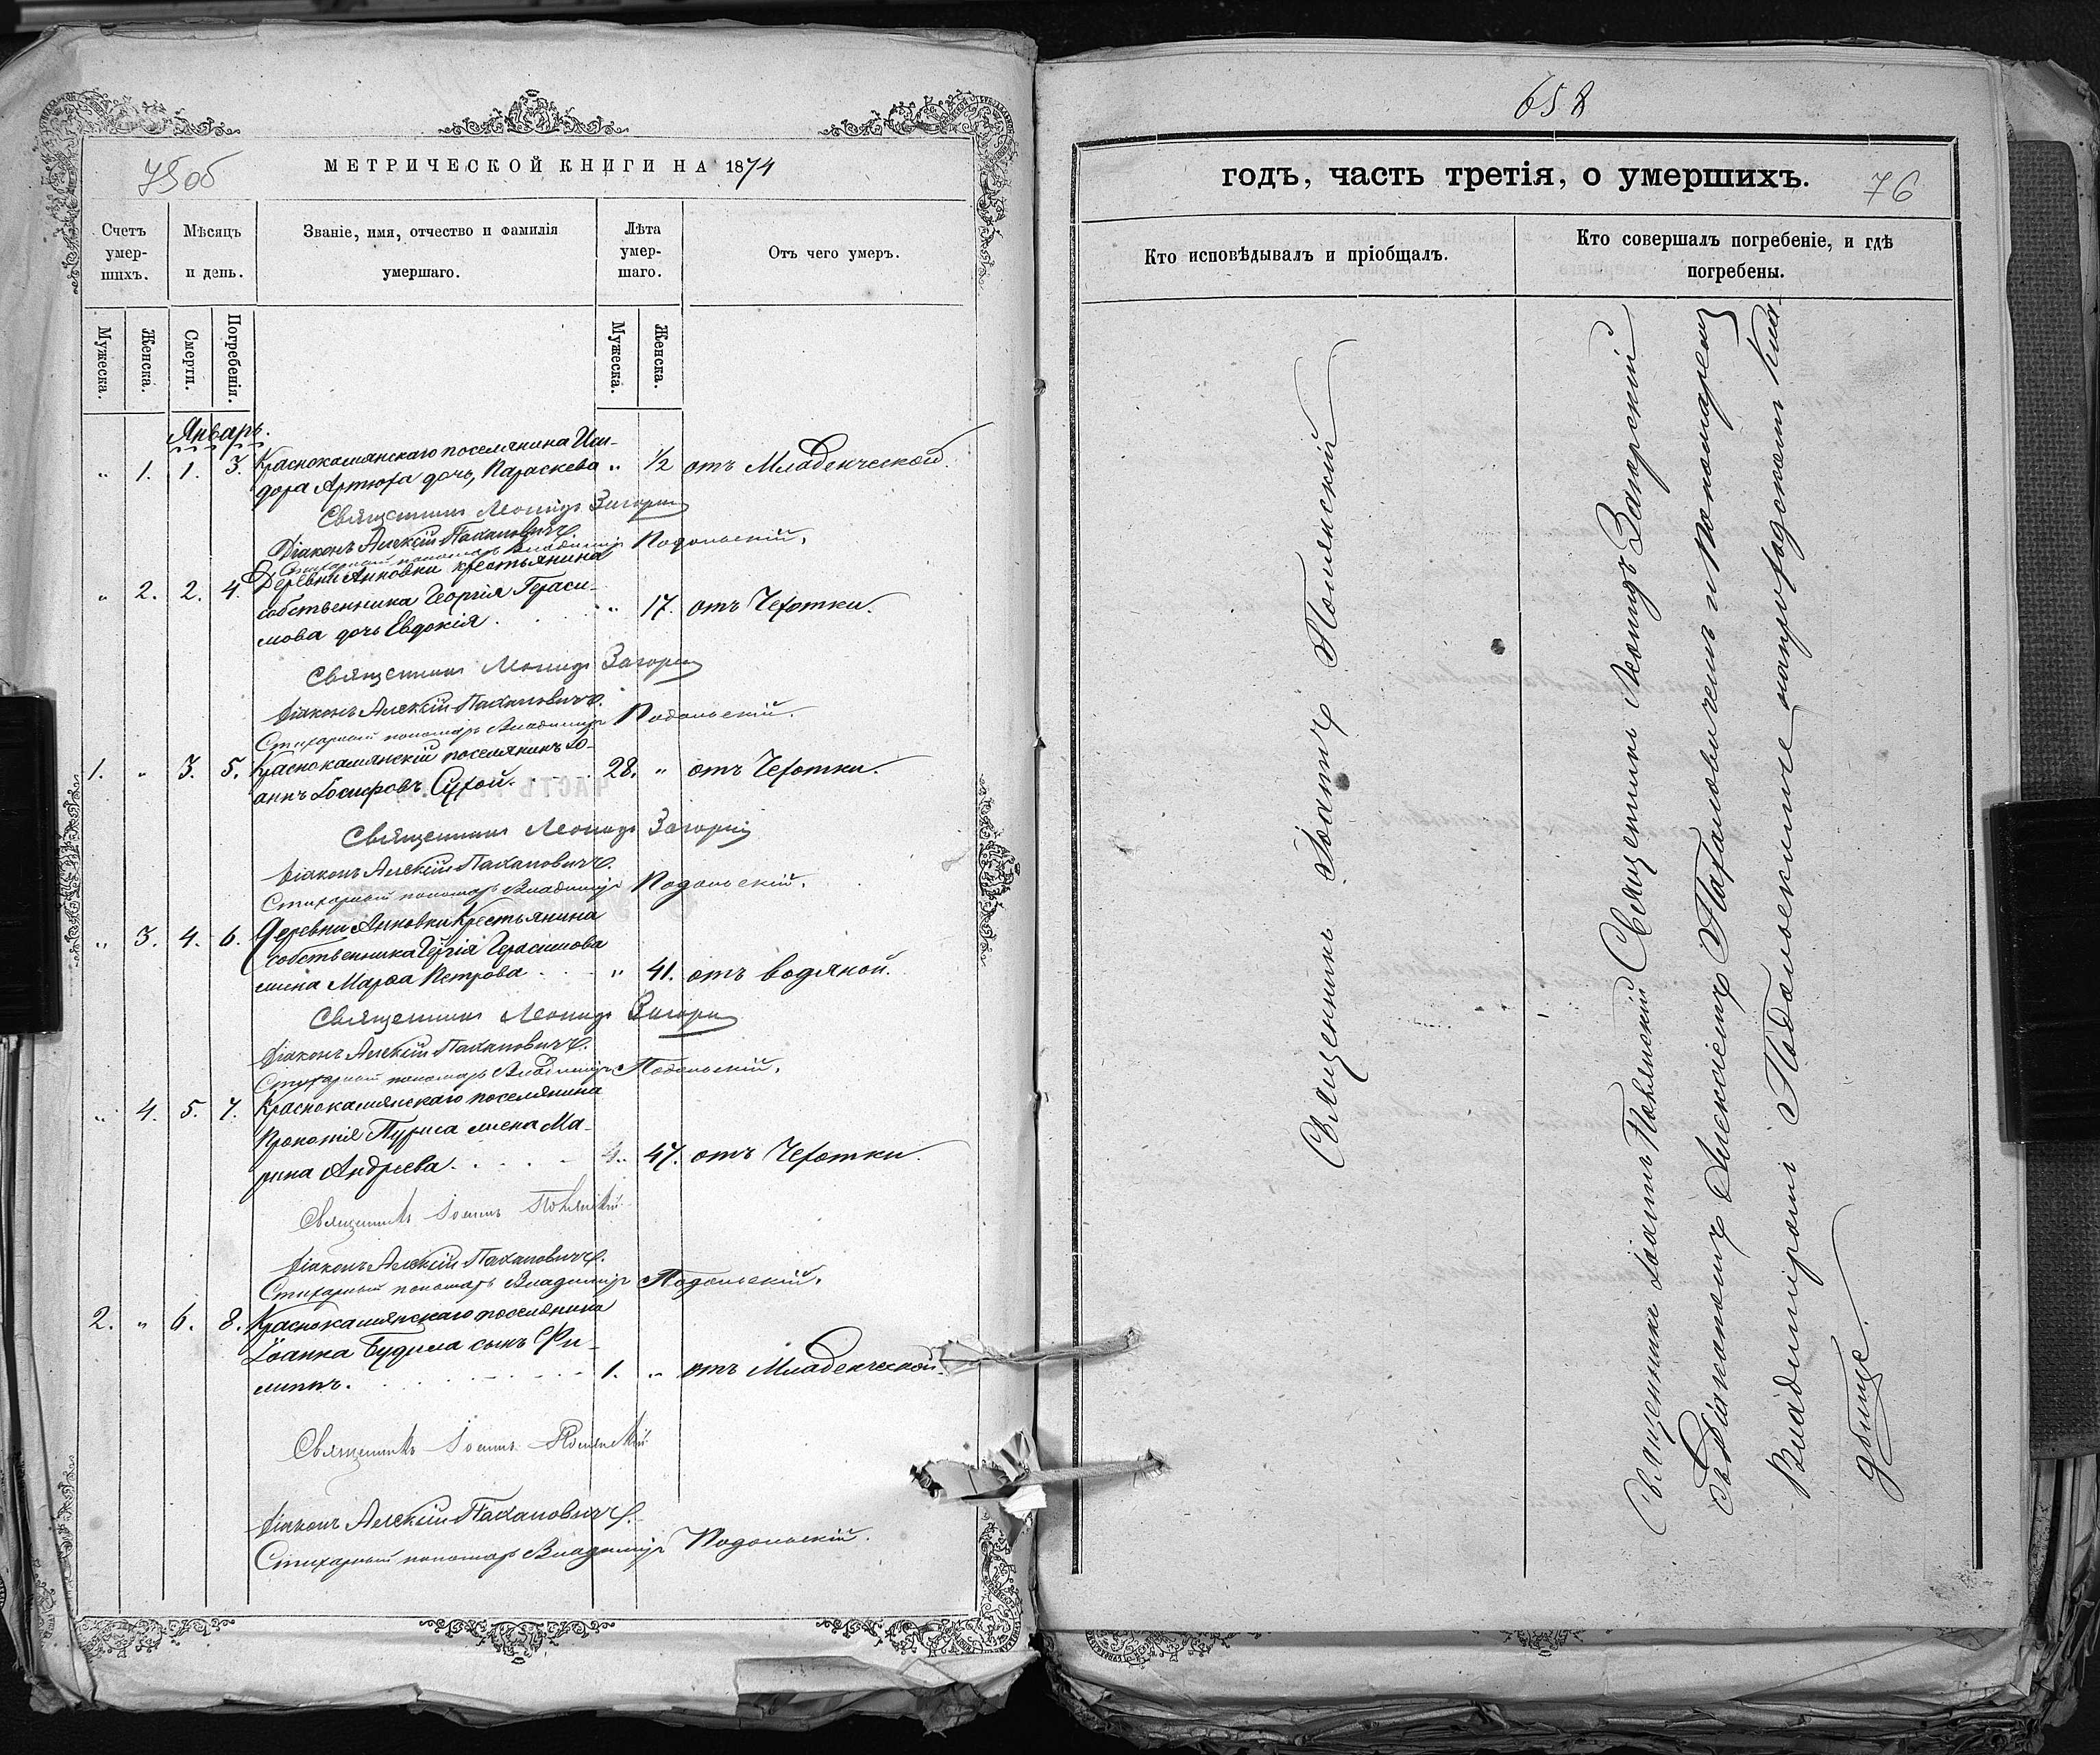 75об
МЕТРИЧЕСКОЙ КНИГИ НА 1874
Счетъ умер-шихъ.
Мѣсяцъ и день.
Званіе, имя, отчество и фамилія умершаго.
Лѣта умер-шаго.
Отъ чего умеръ.
Мужеска.
Женска.
Смерти.
Погребенія.
Мужеска.
Женска.
Январь.
Краснокамянскаго поселянина Иси-
„ 1. 1. 3. дора Артюха дочь, Параскева „ ½ отъ Младенческой.
Священникъ Леонидъ Загорскій
Діаконъ Алексій Пахановичъ.
Стихарный пономарь Владиміръ Подольскій.
Деревни Анновки крестьянина
„ 2. 2. 4. собственника Георгія Гераси- „ 17. отъ Чахотки.
мова дочь Евдокія.
Священникъ Леонидъ Загорскій
Діаконъ Алексій Пахановичъ.
Стихарный пономарь Владиміръ Подольскій.
1. „ 3. 5. Краснокамянскій поселянинъ Іо- 28. „ отъ Чахотки.
аннъ Іосифовъ Сухой.
Священникъ Леонидъ Загорскій
Діаконъ Алексій Пахановичъ.
Стихарный пономарь Владиміръ Подольскій.
„ 3. 4. 6. Деревни Анновки Крестьянина
собственника Георгія Герасимова
жена Марѳа Петрова „ 41. отъ водяной.
Священникъ Леонидъ Загорскій
Діаконъ Алексій Пахановичъ.
Стихарный пономарь Владиміръ Подольскій.
„ 4. 5. 7. Краснокамянскаго поселянина
Прокопія жена Ма-
рина Андреева. „ 47. отъ Чахотки.
Священникъ Іоаннъ Полянскій
Діаконъ Алексій Пахановичъ.
Стихарный пономарь Владиміръ Подольскій.
2. „ 6. 8. Краснокамянскаго поселянина
Іоанна Будила сынъ Фи-
липпъ. 1. „ отъ Младенческой.
Священникъ Іоаннъ Полянскій
Діаконъ Алексій Пахановичъ.
Стихарный пономарь Владиміръ Подольскій.
658
годъ, часть третія, о умершихъ.
76
Кто исповѣдывалъ и пріобщалъ.
Кто совершалъ погребеніе, и гдѣ погребены.
Священникъ Іоаннъ Полянскій
Священники Іоаннъ Полянскій Священникъ Леонидъ Загорскій
съ Діакономъ Алексіемъ Пахановичемъ и Пономаремъ
Владиміромъ Подольскимъ на приходскомъ кла-
дбищѣ.